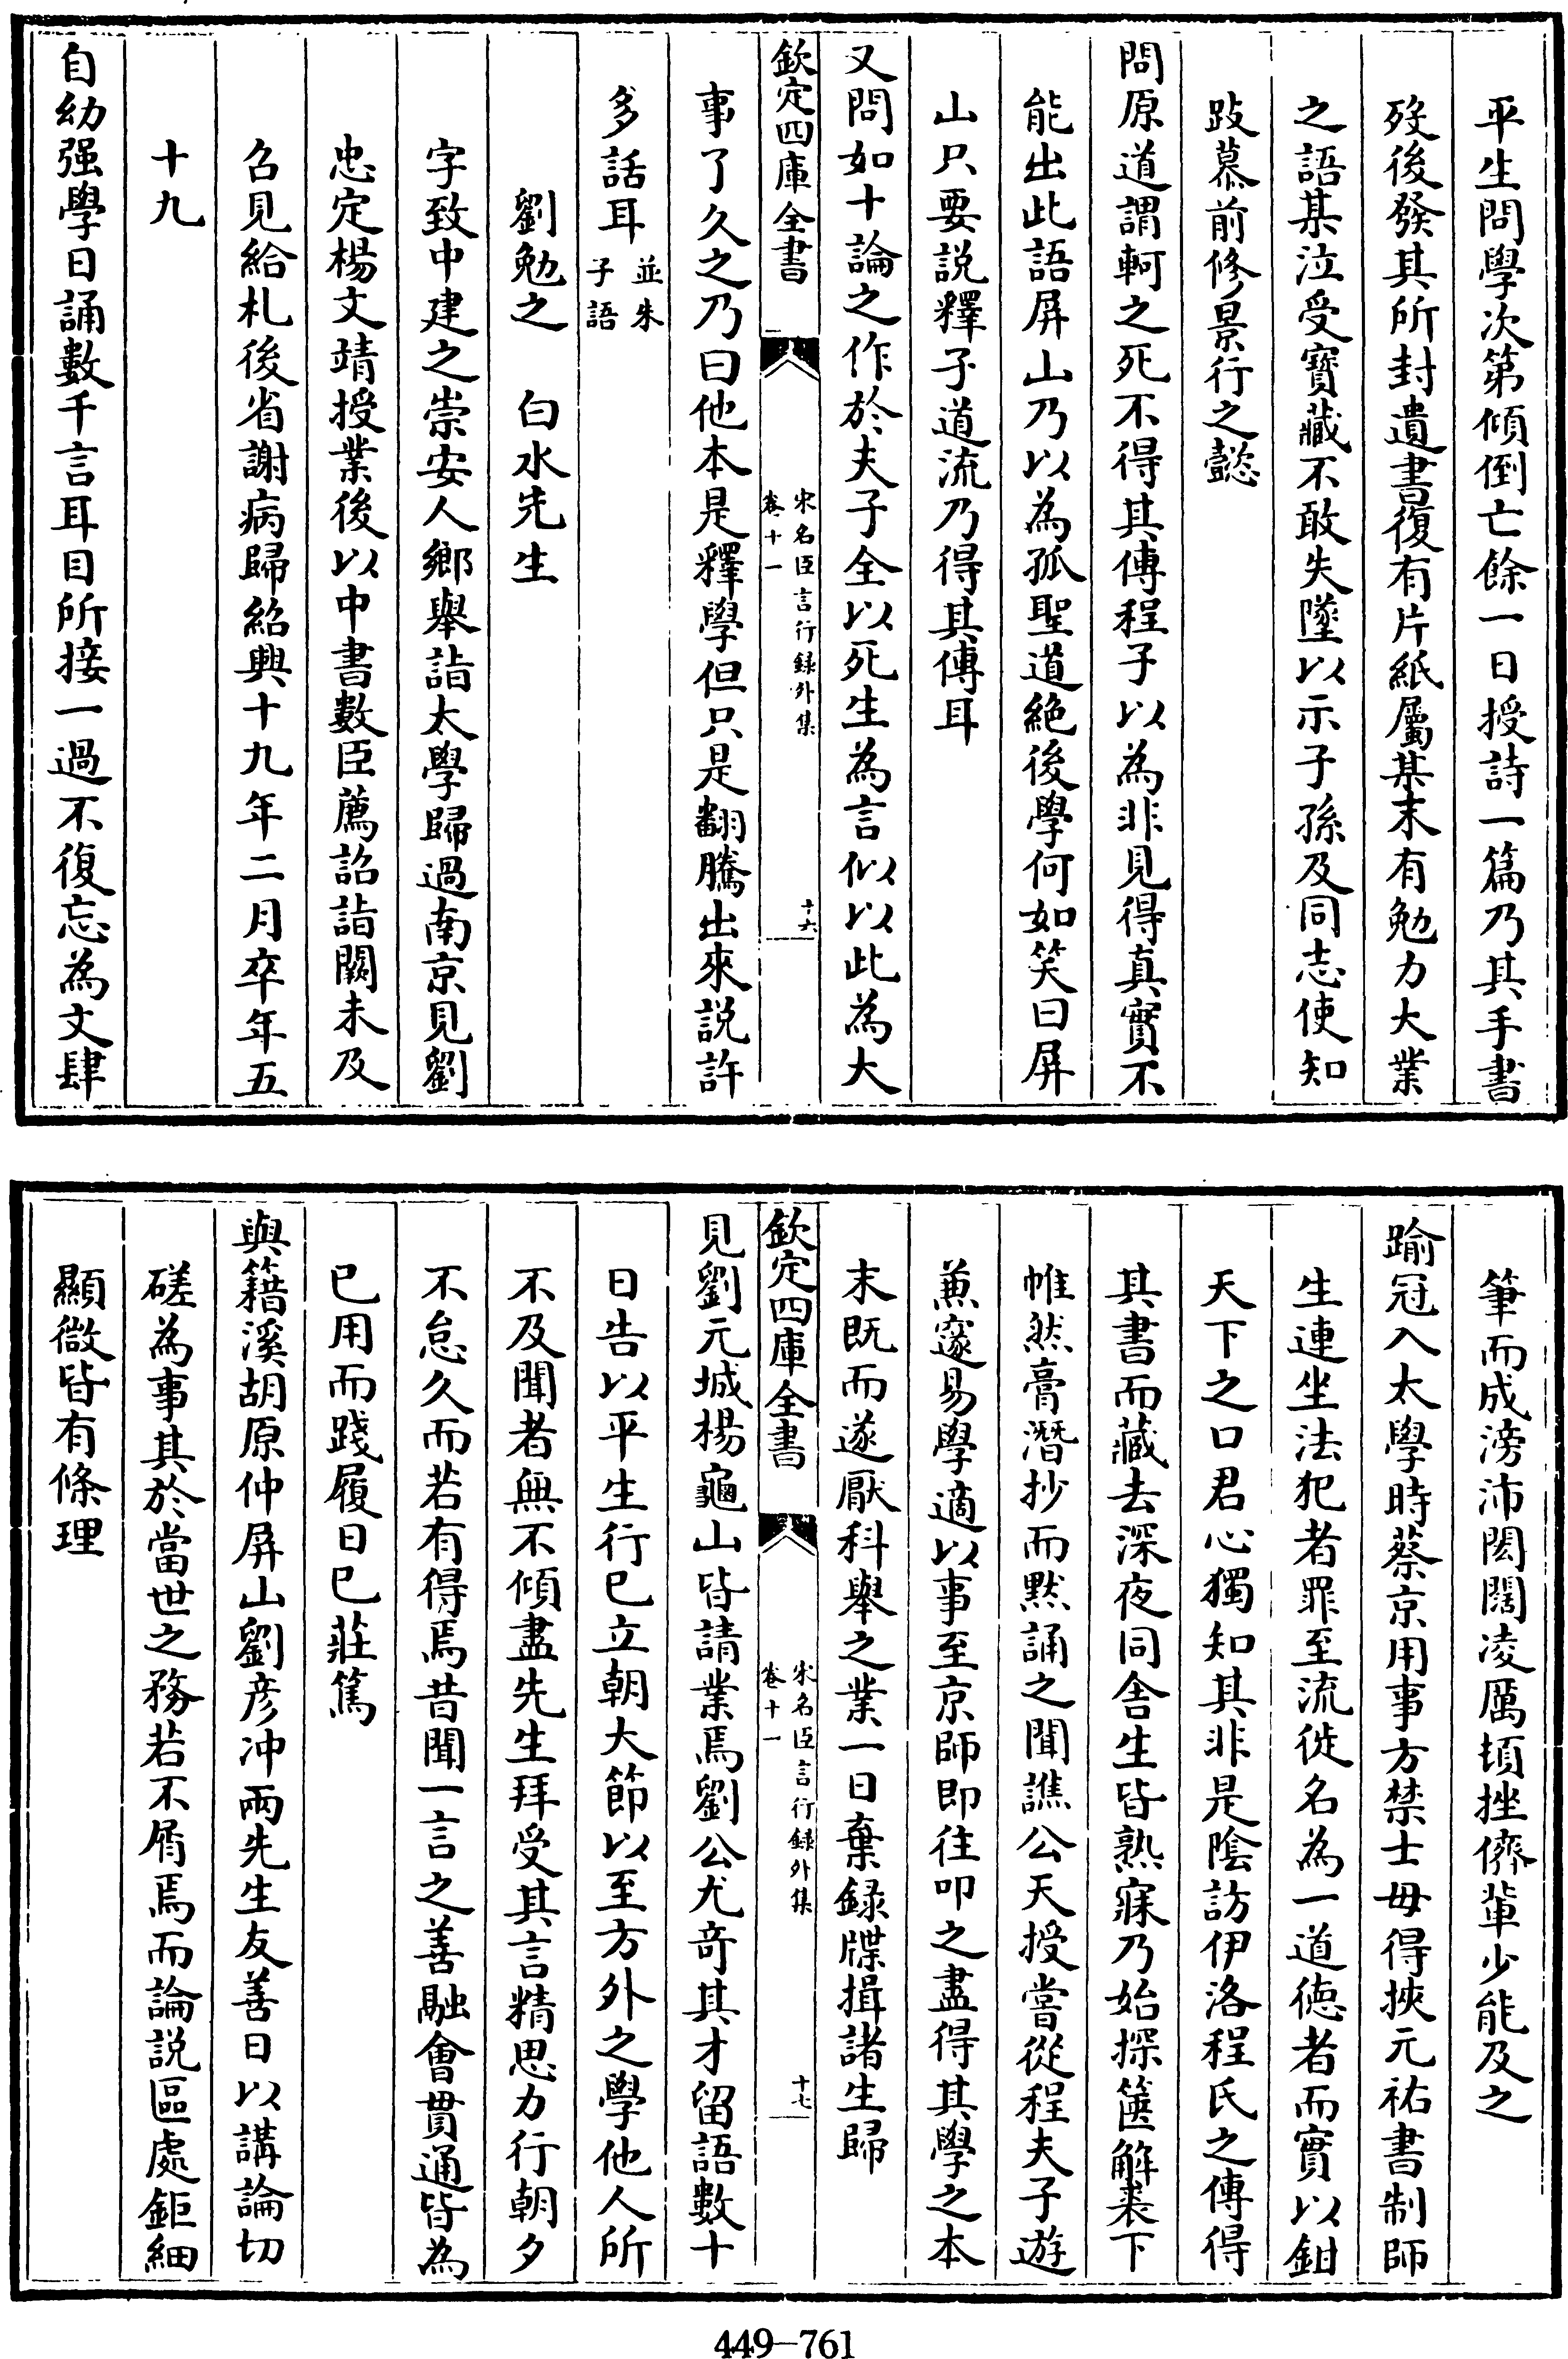 平生問學次第傾倒亡餘一日授詩一篇乃其手書
歿後發其所封遺書復有片紙屬某末有勉力大業
之語某泣受寶藏不敢失墜以示子孫及同志使知
跂慕前修景行之懿
問原道謂軻之死不得其傳程子以為非見得真實不
能出此語屏山乃以為孤聖道絶後學何如笑曰屏
山只要説釋子道流乃得其傳耳
又問如十論之作於夫子全以死生為言似以此為大
欽定四庫全書
宋名臣言行録外集
卷十一
十六
事了久之乃曰他本是釋學但只是翻騰出來説許
多話耳並朱子語
劉勉之　白水先生
字致中建之崇安人鄉舉詣太學歸過南京見劉
忠定楊文靖授業後以中書數臣薦詔詣闕未及
召見給札後省謝病歸紹興十九年二月卒年五
十九
自幼强學日誦數千言耳目所接一過不復忘為文肆
筆而成滂沛閎闊凌厲頓挫儕輩少能及之
踰冠入太學時蔡京用事方禁士毋得挾元祐書制師
生連坐法犯者罪至流徙名為一道徳者而實以鉗
天下之口君心獨知其非是陰訪伊洛程氏之傳得
其書而藏去深夜同舍生皆熟寐乃始探篋解袠下
帷然膏潛抄而黙誦之聞譙公天授嘗從程夫子遊
兼邃易學適以事至京師即往叩之盡得其學之本
末既而遂厭科舉之業一日棄録牒揖諸生歸
欽定四庫全書
宋名臣言行録外集
卷十一
十七
見劉元城楊龜山皆請業焉劉公尤竒其才留語數十
日告以平生行已立朝大節以至方外之學他人所
不及聞者無不傾盡先生拜受其言精思力行朝夕
不怠久而若有得焉昔聞一言之善融會貫通皆為
已用而踐履日已莊篤
與籍溪胡原仲屏山劉彦冲兩先生友善日以講論切
磋為事其於當世之務若不屑焉而論説區處鉅細
顯微皆有條理
449-761